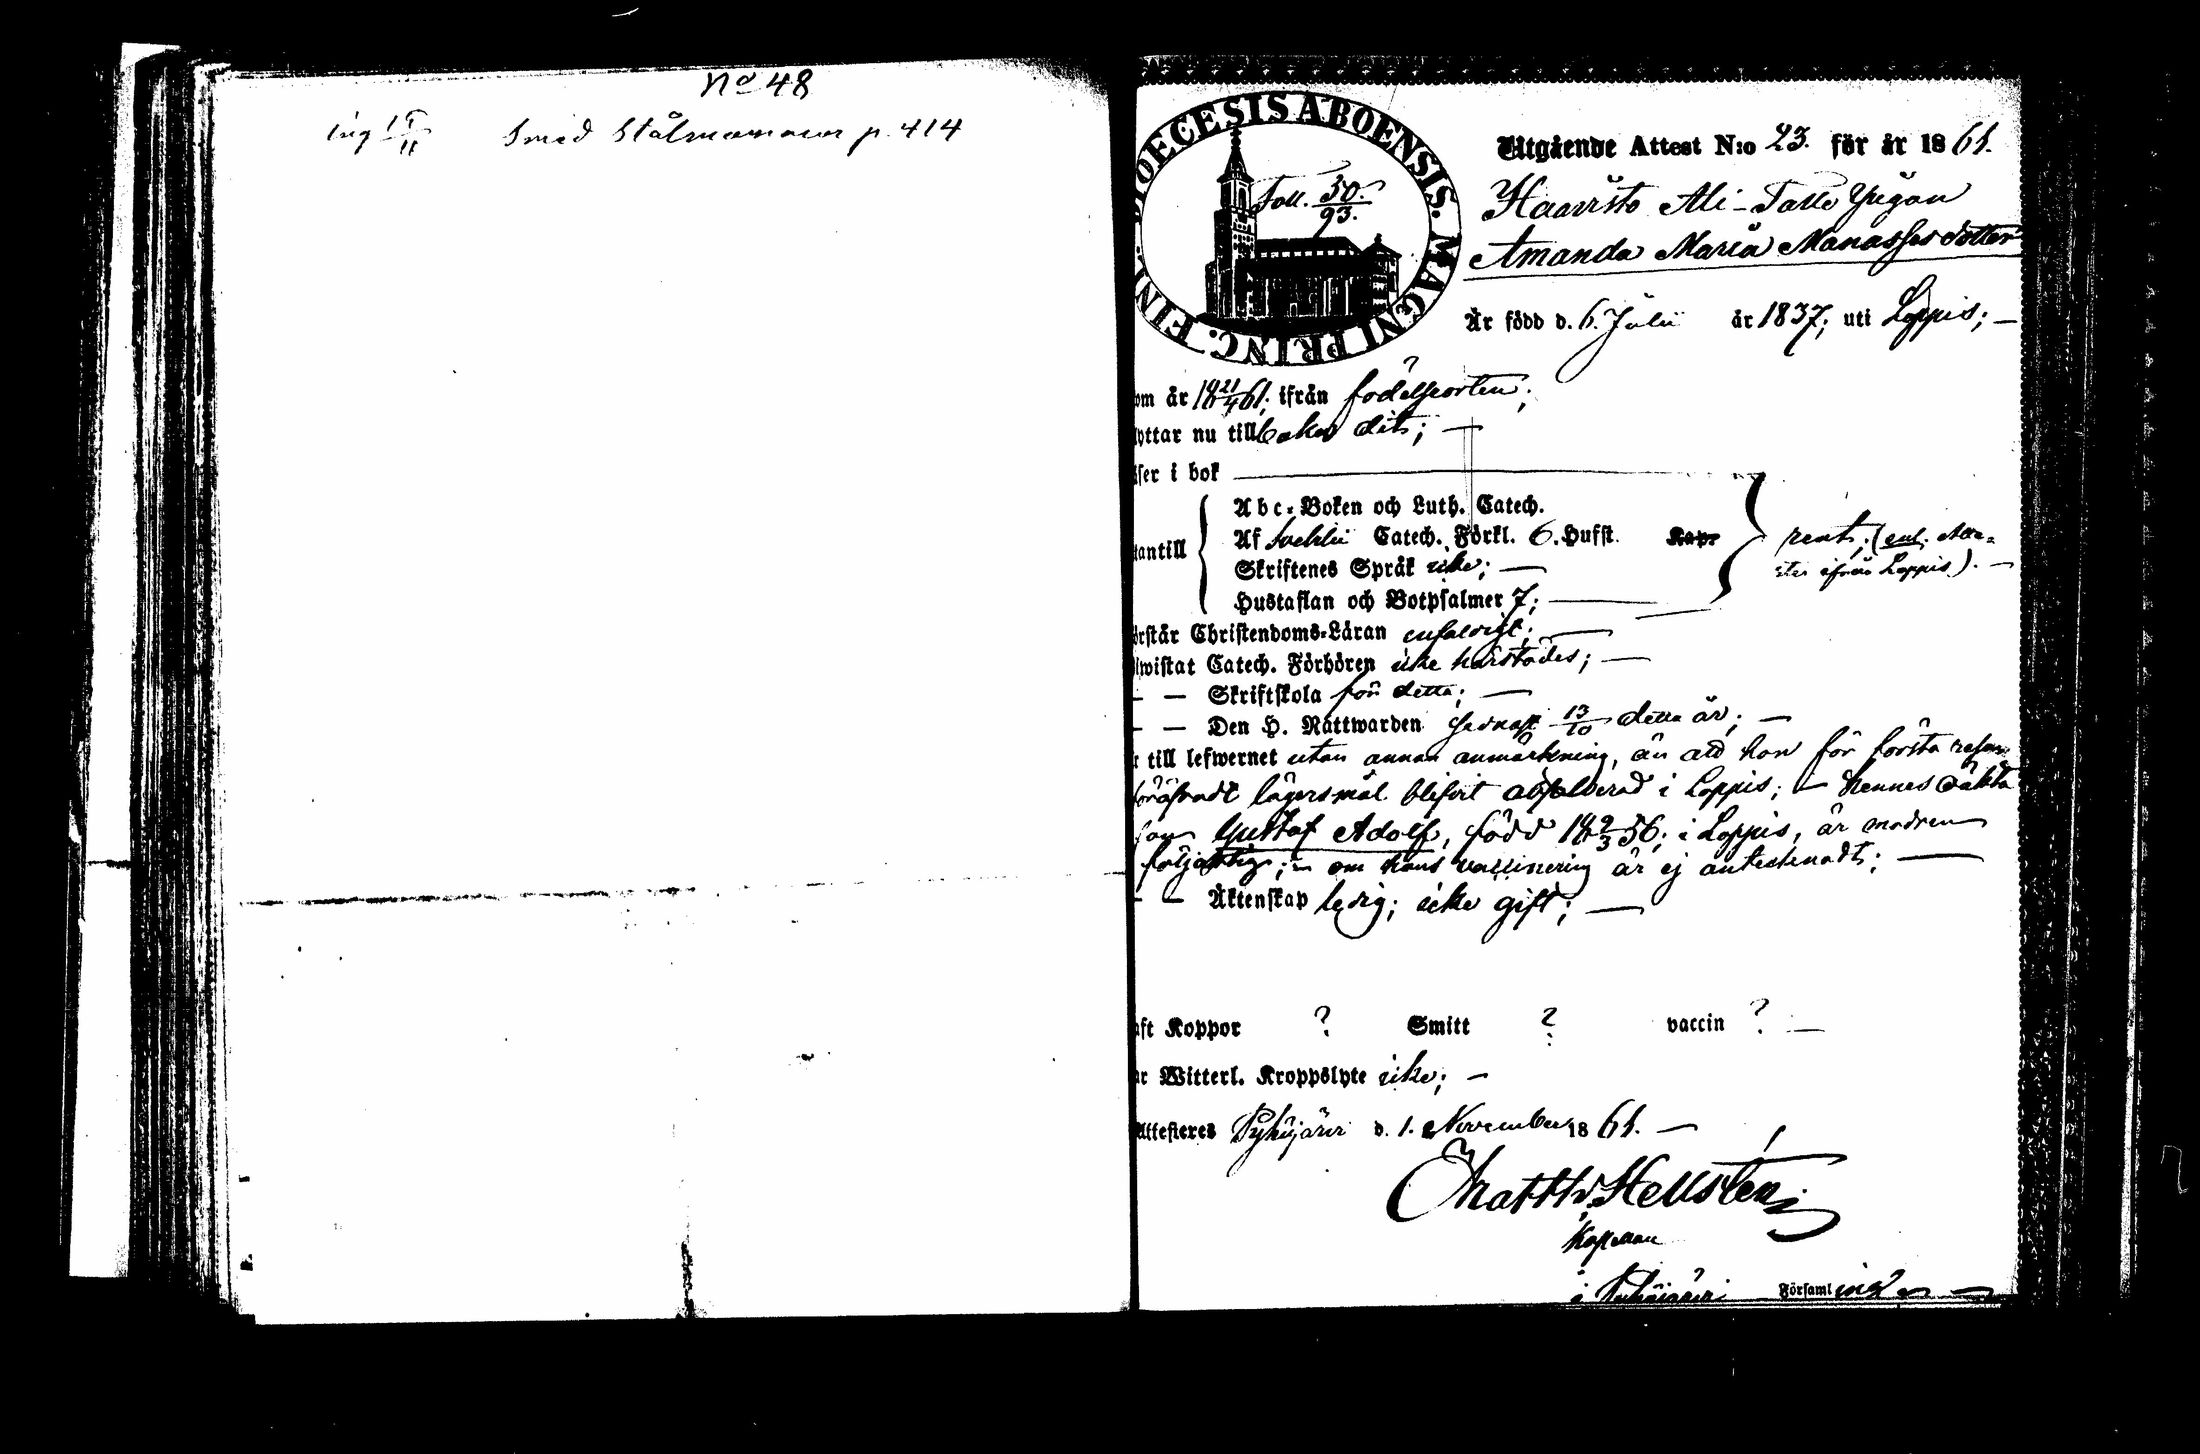 No 48
Smed Stålmannen p. 414
DIOECESIS ABOENSIS. MAGNI PRINC. FINL.
Foll. 30./93.
Utgående Attest N:o 23. för år 1861.
Haavisto Ali-Talle Pigan
Amanda Maria Manassesdotter
Är född d. 6. Julii år 1837; uti Loppis; —
om år 18 21/4 61; ifrån födelseorten;
lyttar nu tillbakes dit; —
äser i bok
Abc-Boken och Luth. Catech.
Af Svebilii Catech. Förkl. 6. Hufst. Kap.
antill
Skriftenes Språk icke; —
Hustaflan och Botpsalmer 7; —
rent; (enl. Atte-
ster ifrån Loppis). —
örstår Christendoms-Läran enfaldigt; —
iwistat Catech. Förhören icke härstädes; —
— — Skriftskola för detta; —
— — Den H. Nattwarden sednast 13/10 detta år; —
r till lefwernet utan annan anmärkning, än att hon för första resan
föröfvadt lägersmål blifvit absolverad i Loppis; — hennes oäkta
son Gustaf Adolf, född 18 9/3 56; i Loppis, är modren
följaktig; — om hans vaccinering är ej antecknadt; —
— — Äktenskap ledig; icke gift; —
aft Koppor ? Smitt ? vaccin ? —
ar Witterl. Kroppslyte icke; —
Attesteres Pyhäjärvi d. 1. November 1861. —
Matth. Hellstén;
Kapellan
i Pyhäjärvi Församling